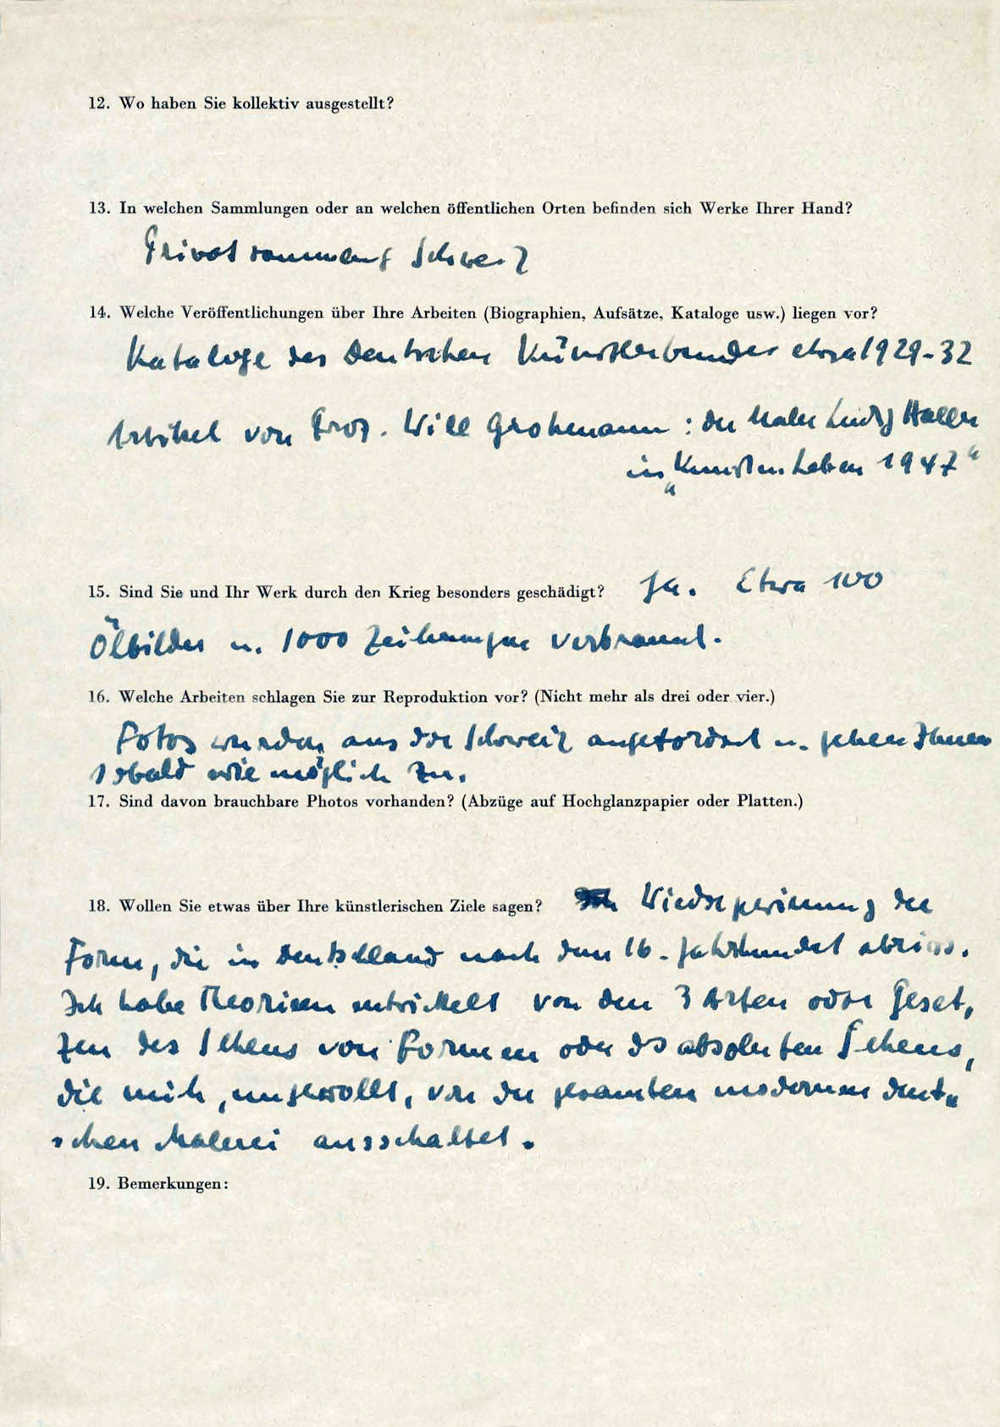 12. Wo haben Sie kollektiv ausgestellt?
13. In welchen Sammlungen oder an welchen öffentlichen Orten befinden sich Werke Ihrer Hand?
Privatsammlung Schweiz
14. Welche Veröffentlichungen über Ihre Arbeiten (Biographien, Aufsätze, Kataloge usw.) liegen vor?
Kataloge des Deutschen Künstlerbundes etwa 1929-32
Artikel von Prof. Will Grohmann: der Maler Ludwig Haller
in „Kunst u. Leben 1947“
15. Sind Sie und Ihr Werk durch den Krieg besonders geschädigt?
Ja. Etwa 100
Ölbilder u. 1000 Zeichnungen verbrannt.
16. Welche Arbeiten schlagen Sie zur Reproduktion vor? (Nicht mehr als drei oder vier.)
Fotos wurden aus der Schweiz angefordert u. gehen Ihnen
sobald wie möglich zu.
17. Sind davon brauchbare Photos vorhanden? (Abzüge auf Hochglanzpapier oder Platten.)
18. Wollen Sie etwas über Ihre künstlerischen Ziele sagen?
Wiedergewinnung der
Form, die in Deutschland nach dem 16. Jahrhundert abriss.
Ich habe Theorieen entwickelt von den 3 Arten oder Geset,
zen des Sehens von Formen oder ds absoluten Sehens,
die mich, ungewollt, von der gesamten modernen deut„
schen Malerei ausschaltet.
19. Bemerkungen: